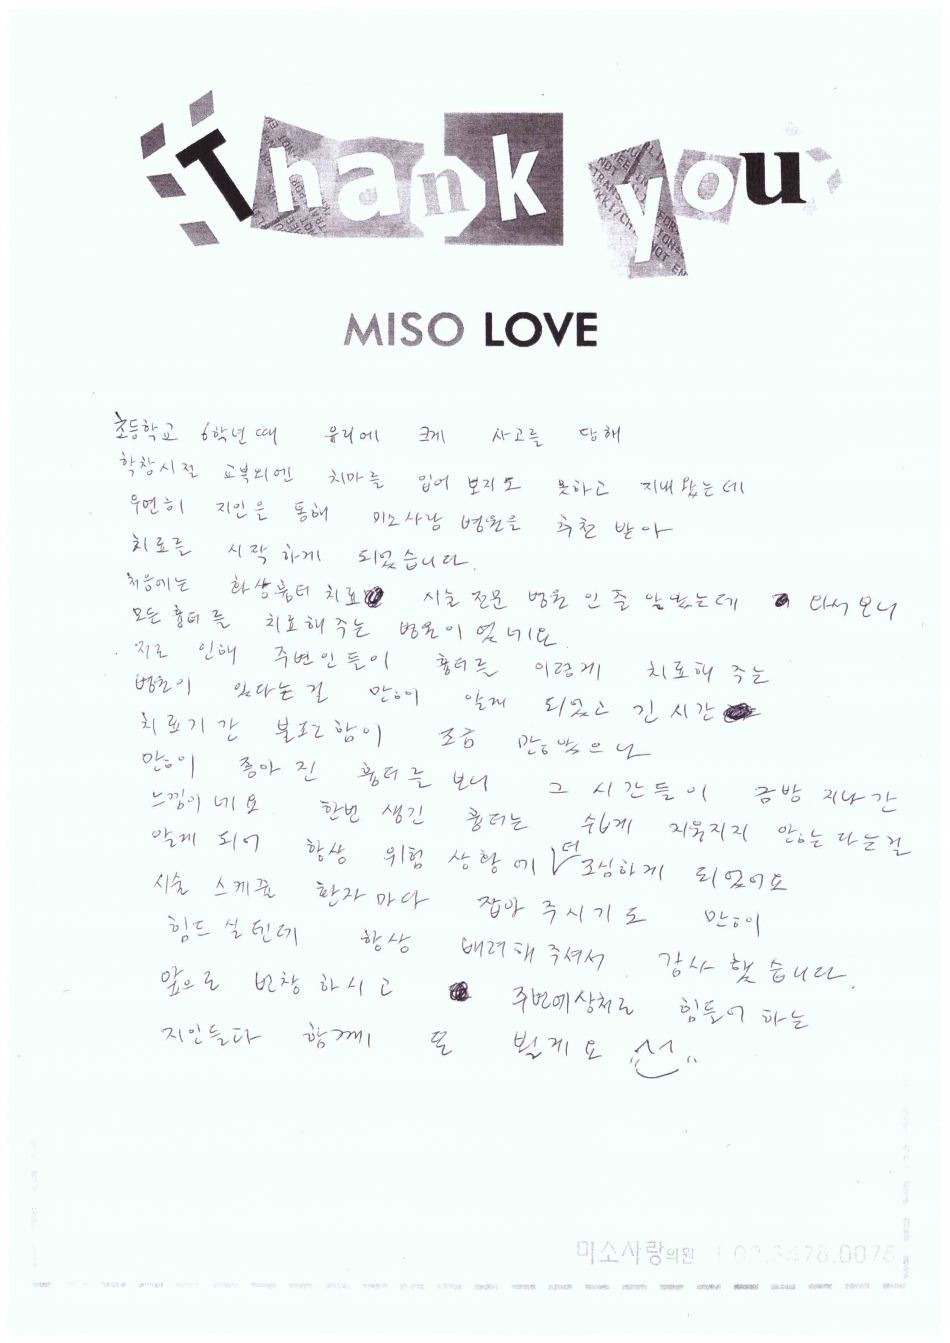 Thank you
MISO LOVE
초등학교 6학년때 유리에 크게 사고를 당해
학창시절 교복외엔 치마를 입어 보지도 못하고 지내왔는데
우연히 지인을 통해 미소사랑 병원을 추천 받아
치료를 시작 하게 되었습니다.
처음에는 화상흉터치료 시술 전문 병원 인 줄 알았는데 와서 보니
모든 흉터를 치료해주는 병원이었네요
저로 인해 주변인들이 흉터를 이렇게 치료해 주는
병원이 있다는 걸 많이 알게 되었고 긴 시간
치료기간 불편함이 조금 많았으나
많이 좋아 진 흉터를 보니 그 시간들이 금방 지나간
느낌이네요. 한번 생긴 흉터는 쉽게 지움지지 안하는 다는걸
알게 되어 항상 위험 상황에 더 조심하게 되었어요
시술 스케쥴 환자마다 잡아 주시기도 많이
힘드실텐데 항상 배려해주셔서 감사 했습니다.
앞으로 번창 하시고 주변에상처로 힘들어 하는
지인들과 함께 또 뵐게요
미소사랑의원 T 02.3478.0075